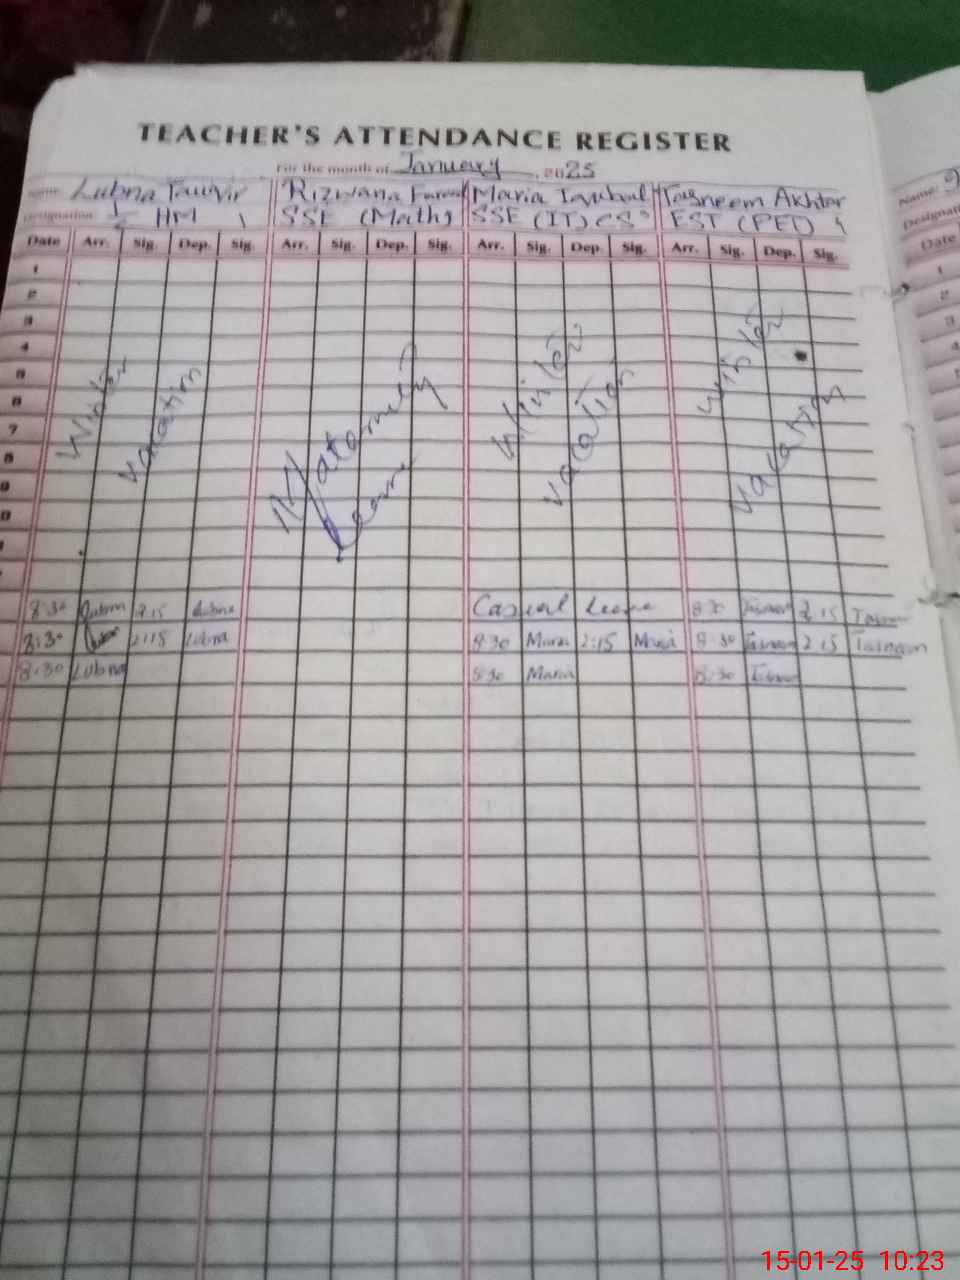 TEACHER'S ATTENDANCE REGISTER
For the month of January 2025
Name: Lubna Tanvir Rizwana Maria Tasneem Akhter
Designation HM SSE (Math) SSE (IT) CS EST (PET)
Date Arr. Sig. Dep. Sig. Arr. Sig. Dep. Sig. Arr. Sig. Dep Sig. Arr. Sig. Dep. Sig.
1
2
3
4
5
6
7
8
9
Winter vacation
Maternity Leave
Winter vacation
Winter vacation
8:30 Lubna 2:15 Lubna Casual Leave 8:30 Tasneem 2:15 Tasneem
8:30 2:15 Lubna 8:30 Maria 2:15 Maria 8:30 Tasneem 2:15 Tasneem
8:30 Lubna 8:30 Maria 8:30 Tasneem
Name:
Designati
Date
1
2
3
4
15-01-25 10:23